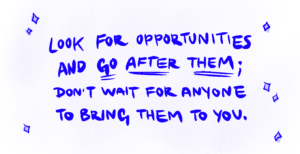 LOOK FOR OPPORTUNITIES
AND GO AFTER THEM;
DON'T WAIT FOR ANYONE
TO BRING THEM TO YOU.